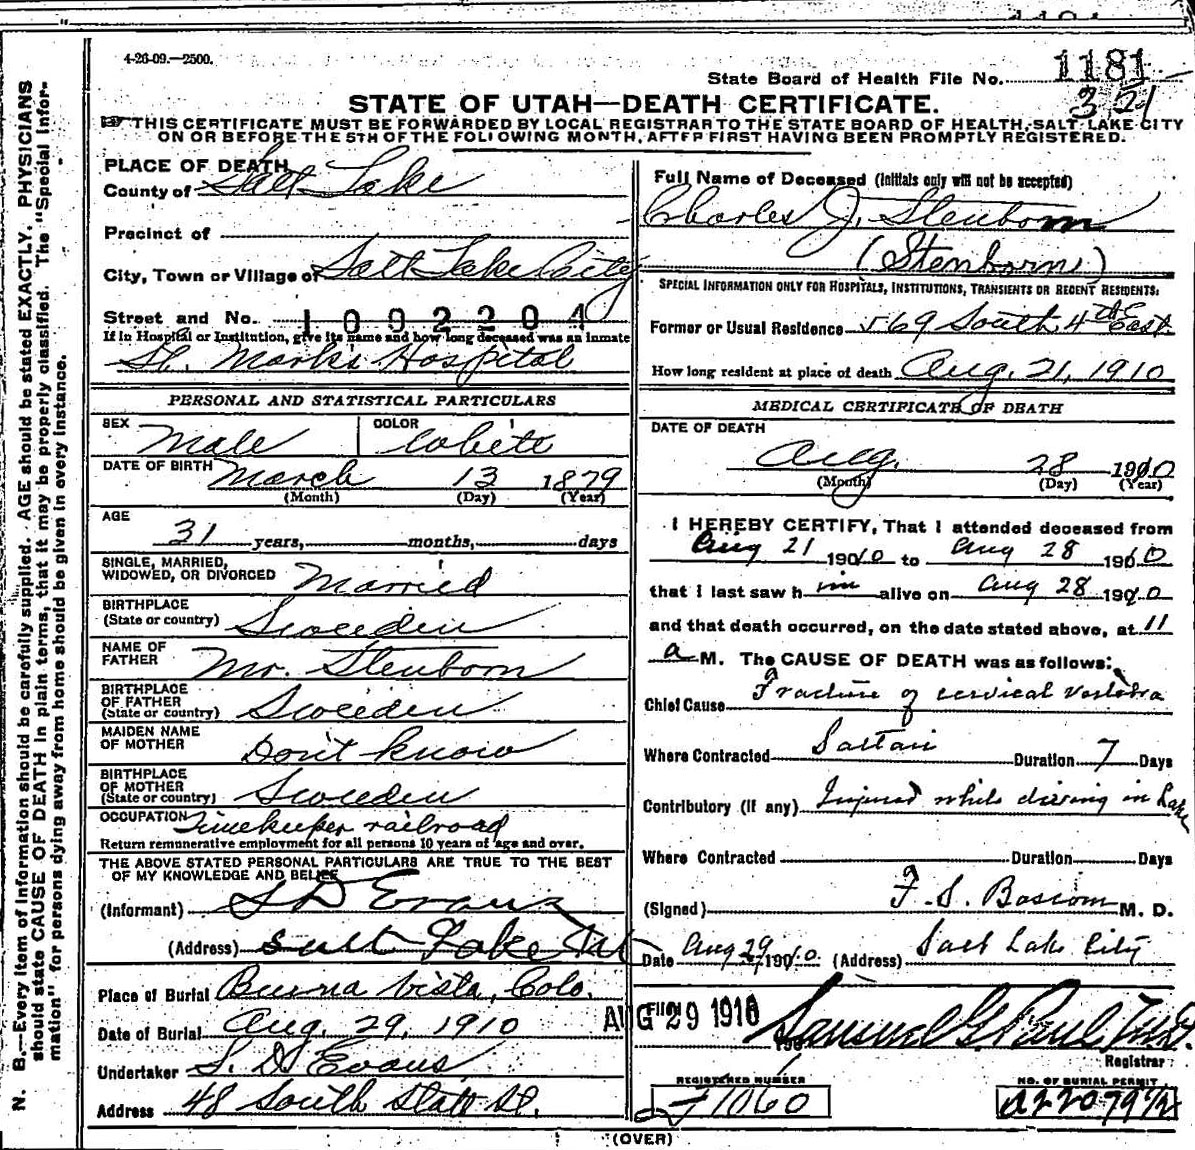 4-26-09.—2500.
State Board of Health File No. 1181
321
STATE OF UTAH—DEATH CERTIFICATE.
THIS CERTIFICATE MUST BE FORWARDED BY LOCAL REGISTRAR TO THE STATE BOARD OF HEALTH, SALT LAKE CITY
ON OR BEFORE THE 5TH OF THE FOLLOWING MONTH, AFTER FIRST HAVING BEEN PROMPTLY REGISTERED.
N. B.—Every item of information should be carefully supplied. AGE should be stated EXACTLY. PHYSICIANS
should state CAUSE OF DEATH in plain terms, that it may be properly classified. The "Special Infor-
mation" for persons dying away from home should be given in every instance.
PLACE OF DEATH
County of Salt Lake
Precinct of
City, Town or Village of Salt Lake City
Street and No. 1092204
If in Hospital or Institution, give its name and how long deceased was an inmate
St. Mark's Hospital
PERSONAL AND STATISTICAL PARTICULARS
SEX Male COLOR White
DATE OF BIRTH March 13 1879
(Month) (Day) (Year)
AGE
31 years, months, days
SINGLE, MARRIED,
WIDOWED, OR DIVORCED Married
BIRTHPLACE
(State or country) Sweden
NAME OF
FATHER Mr. Stenborn
BIRTHPLACE
OF FATHER
(State or country) Sweden
MAIDEN NAME
OF MOTHER Don't know
BIRTHPLACE
OF MOTHER
(State or country) Sweden
OCCUPATION Timekeeper railroad
Return remunerative employment for all persons 10 years of age and over.
THE ABOVE STATED PERSONAL PARTICULARS ARE TRUE TO THE BEST
OF MY KNOWLEDGE AND BELIEF
(Informant) S D Evans
(Address) Salt Lake Ut
Place of Burial Buena Vista, Colo.
Date of Burial Aug. 29, 1910
Undertaker S. D. Evans
Address 48 South State St.
Full Name of Deceased (Initials only will not be accepted)
Charles J. Stenborn
(Stenborn)
SPECIAL INFORMATION ONLY FOR HOSPITALS, INSTITUTIONS, TRANSIENTS OR RECENT RESIDENTS:
Former or Usual Residence 569 South 4th East
How long resident at place of death Aug. 21, 1910
MEDICAL CERTIFICATE OF DEATH
DATE OF DEATH
Aug. 28 1910
(Month) (Day) (Year)
I HEREBY CERTIFY, That I attended deceased from
Aug 21 1910 to Aug 28 1910
that I last saw him alive on Aug 28 1910
and that death occurred, on the date stated above, at 11
a M. The CAUSE OF DEATH was as follows:
Chief Cause Fracture of cervical vertebra
Where Contracted Saltair Duration 7 Days
Contributory (if any) Injured while diving in Lake
Where Contracted Duration Days
(Signed) F. S. Bascom M. D.
Date Aug 29 1910 (Address) Salt Lake City
AUG 29 1910 Samuel G. Paul
Registrar
REGISTERED NUMBER
1060
NO. OF BURIAL PERMIT
(OVER)